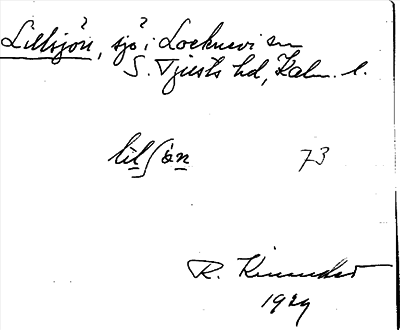 Lillsjön, sjö i Locknevi sn
S. Tjusts hd, Kalm. l.
lilſön 73
R. Kinnander
1929